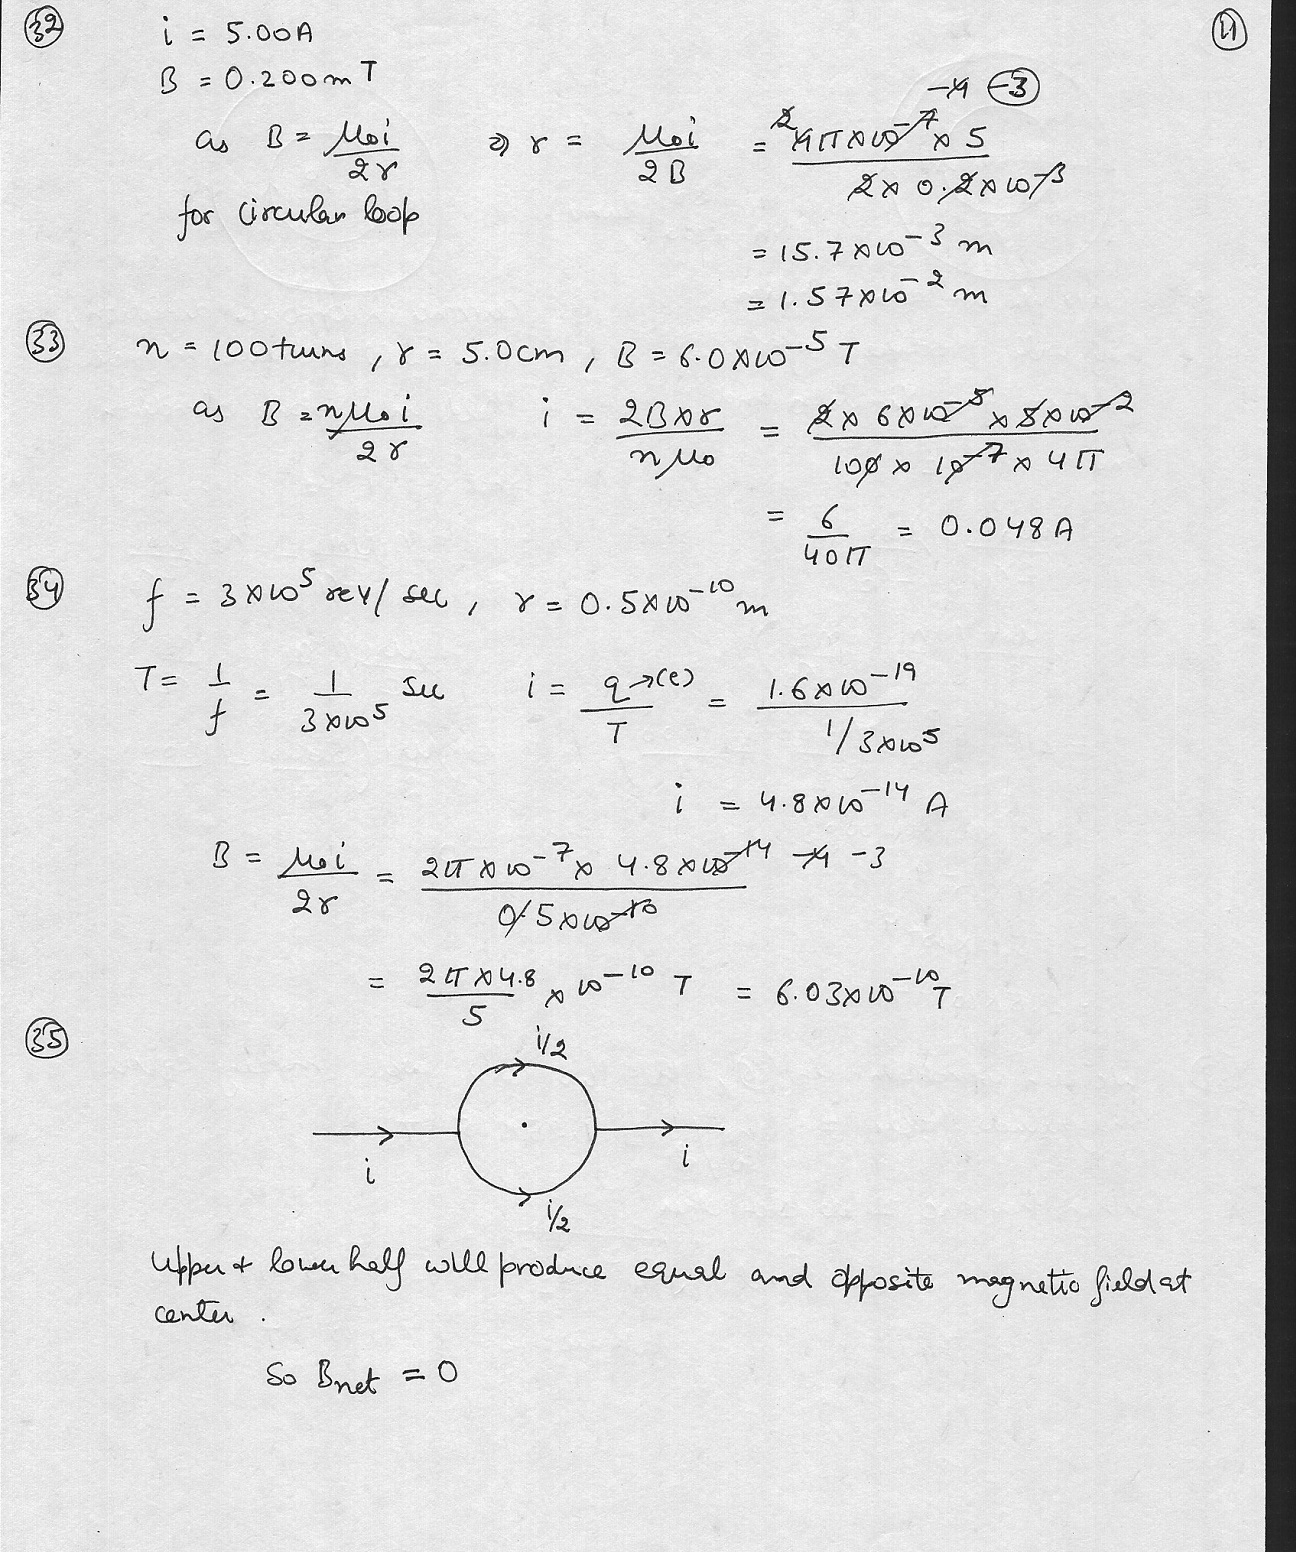 32 i = 5.00A 11
B = 0.200mT
as B = μ₀i/2r ⇒ r = μ₀i/2B = 2 4π×10⁻⁷ × 5 / 2 × 0.2×10⁻³ -4 -3
for circular loop
= 15.7×10⁻³ m
= 1.57×10⁻² m
33 n = 100 turns, r = 5.0cm, B = 6.0×10⁻⁵ T
as B = nμ₀i/2r i = 2B×r/nμ₀ = 2×6×10⁻⁵×5×10⁻² / 100×10⁻⁷×4π
= 6/40π = 0.048A
34 f = 3×10⁵ rev/sec, r = 0.5×10⁻¹⁰ m
T = 1/f = 1/3×10⁵ sec i = q→(e)/T = 1.6×10⁻¹⁹ / 1/3×10⁵
i = 4.8×10⁻¹⁴ A
B = μ₀i/2r = 2π×10⁻⁷× 4.8×10⁻¹⁴ / 0.5×10⁻¹⁰ -4 -3
= 2π×4.8/5 × 10⁻¹⁰ T = 6.03×10⁻¹⁰ T
35
i/2
i i
i/2
Upper & lower half will produce equal and opposite magnetic field at
center.
So Bnet = 0